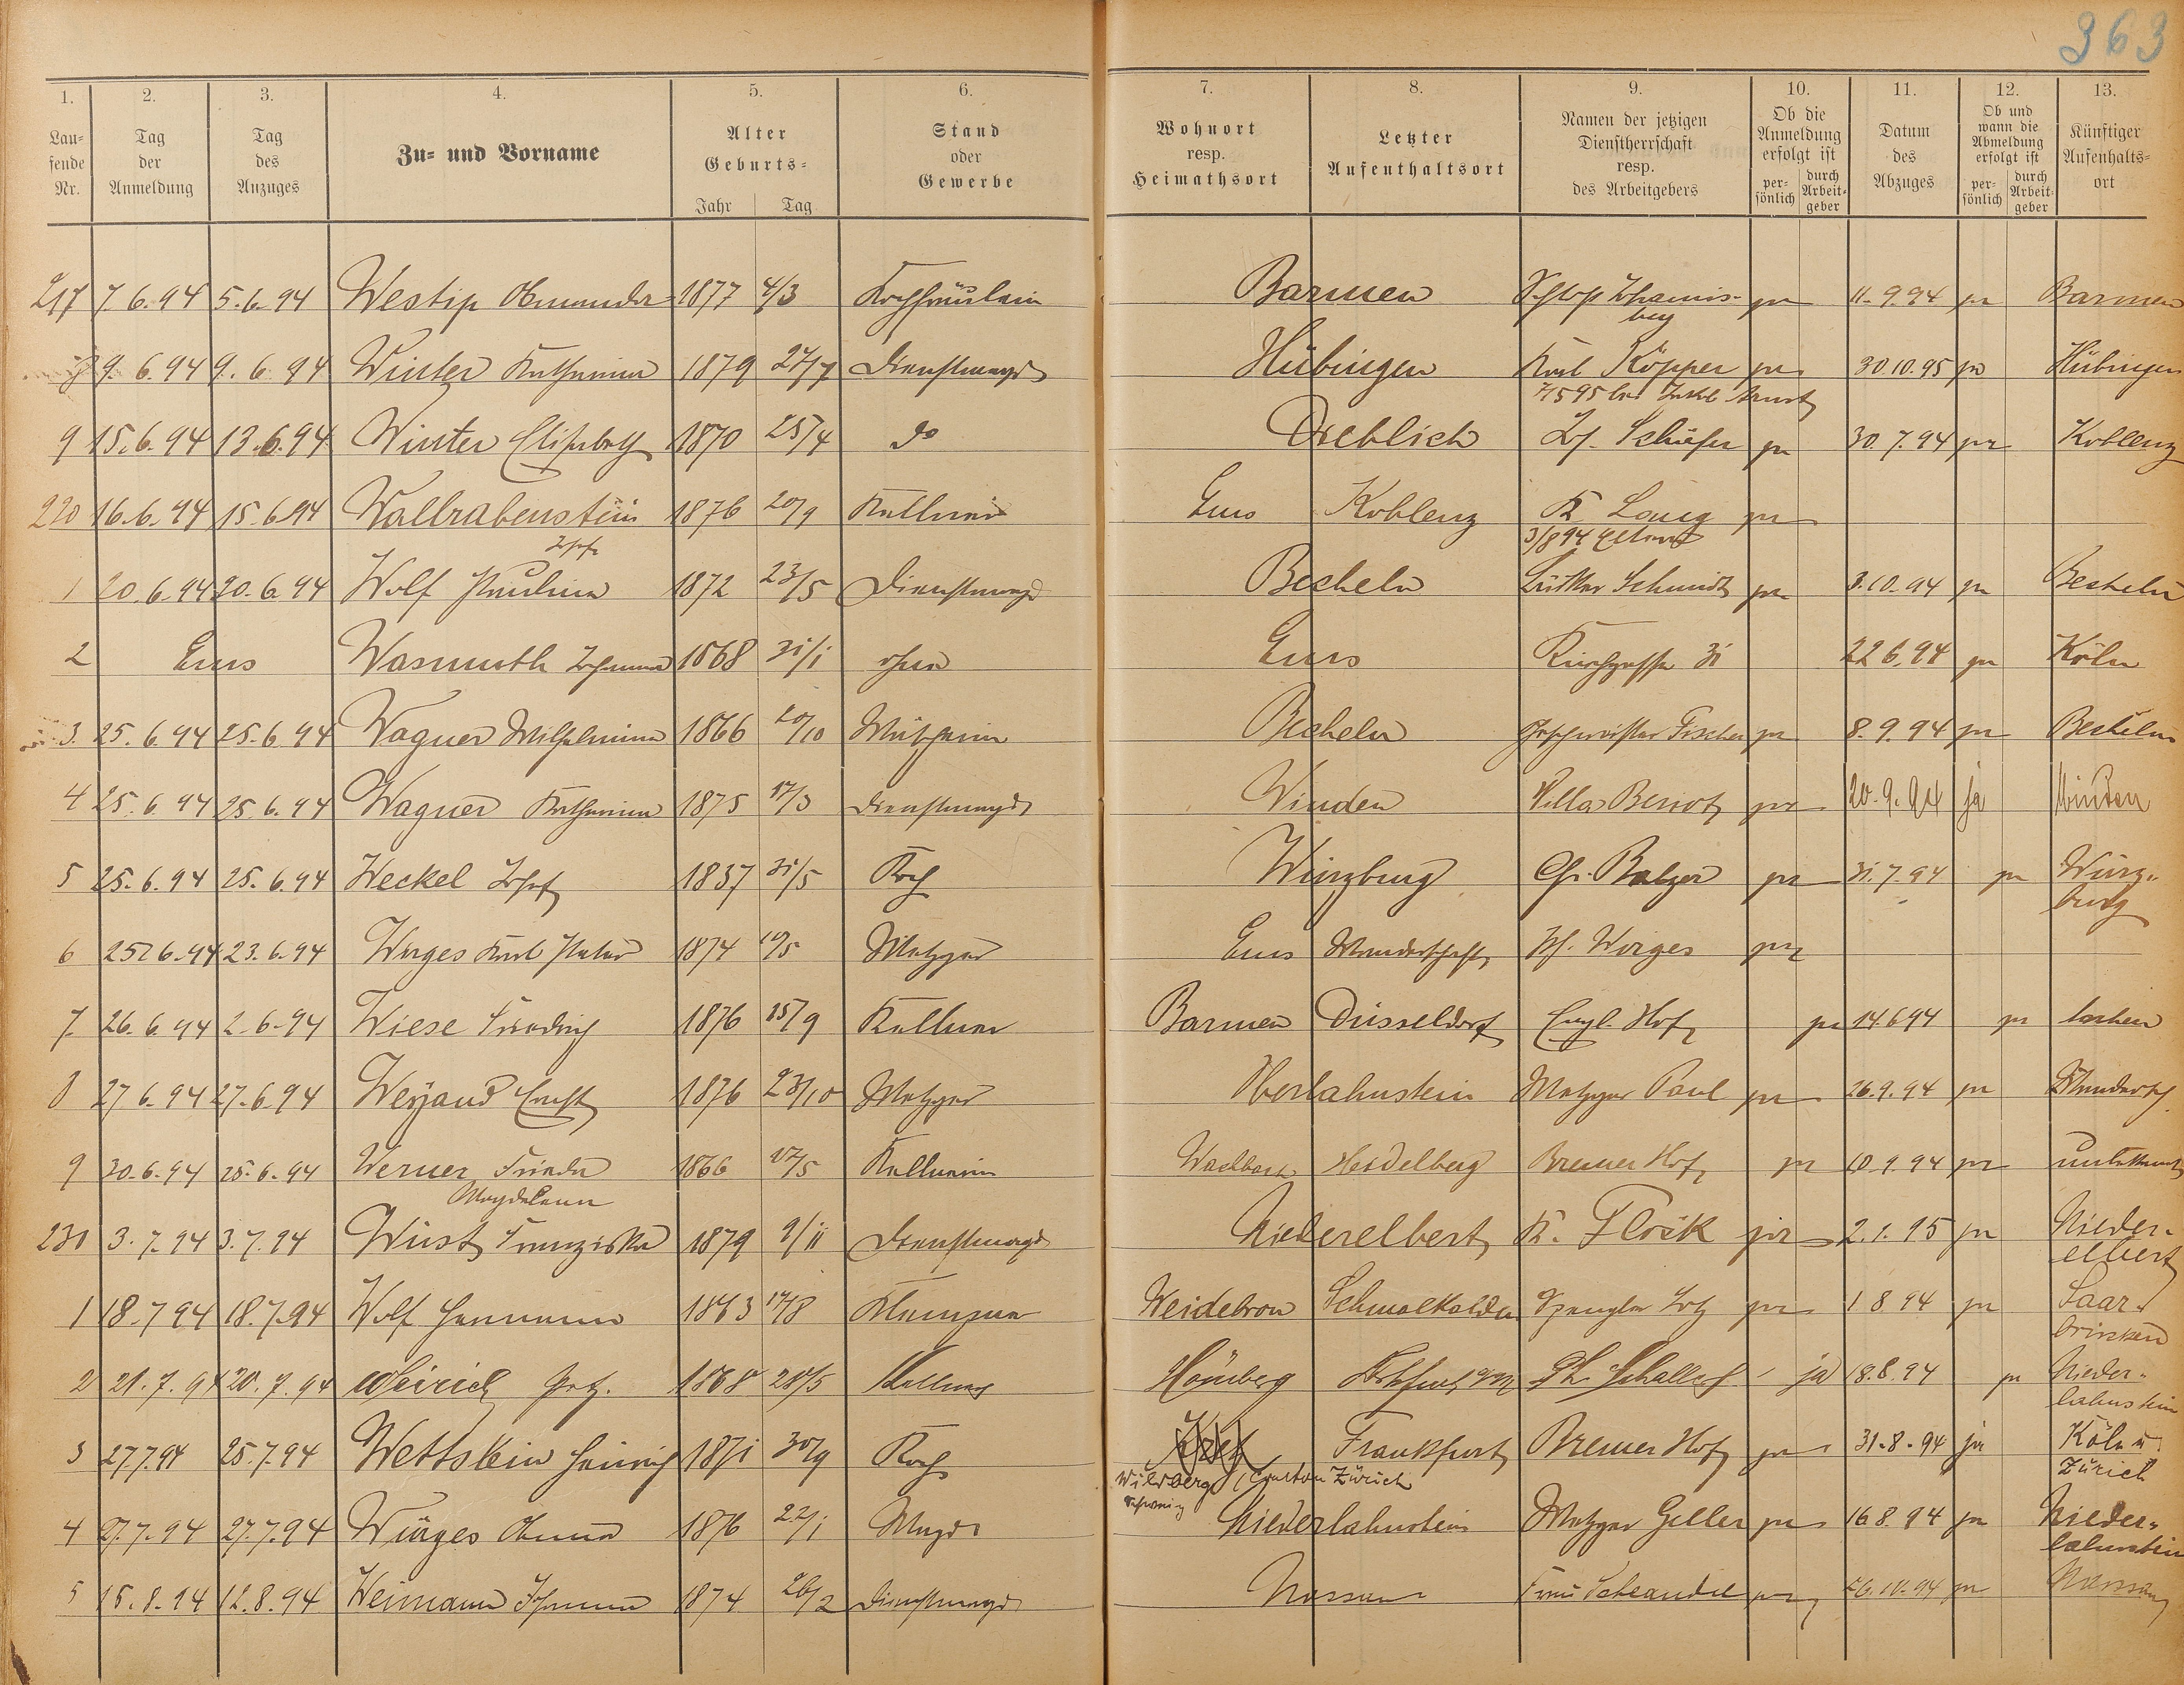 363
1. 2. 3. 4. 5. 6. 7. 8. 9. 10. 11. 12. 13.
Lau-
fende
Nr.
Tag
der
Anmeldung
Tag
des
Anzuges
Zu- und Vorname
Alter
Geburts-
Jahr Tag
Stand
oder
Gewerbe
Wohnort
resp.
Heimathsort
Letzter
Aufenthaltsort
Namen der jetzigen
Dienstherrschaft
resp.
des Arbeitgebers
Ob die
Anmeldung
erfolgt ist
per-
sönlich
durch
Arbeit-
geber
Datum
des
Abzuges
Ob und
wann die
Abmeldung
erfolgt ist
per-
sönlich
durch
Arbeit-
geber
Künftiger
Aufenhalts-
ort
217 7.6.94 5.6.94 1877 4/3 Kochfräulein Barmen ja 11.9.94 ja Barmen
8 9.6.94 9.6.94 Winter Katharina 1879 27/7 Dienstmagd Hübingen Karl Köpper ja 30.10.95 ja Hübingen
9 15.6.94 13.6.94 Winter Elisabeth 1870 25/4 do Dieblich Schäfer ja 30.7.94 ja Koblenz
220 16.6.94 15.6.94 Wallrabenstein 1876 20/9 Kellner Ems Koblenz ja
Josef
1 20.6.94 20.6.94 Wolf Paulina 1872 23/5 Dienstmagd Becheln Schmidt ja 3.10.94 ja Becheln
2 Ems Wasmuth Johanna 1868 31/1 ohne Ems Kirchgasse 31 22.6.94 ja Köln
3. 25.6.94 25.6.94 Wagner Wilhelmine 1866 20/10 Becheln Geschwister Fischer ja 8.9.94 ja Becheln
4 25.6.94 25.6.94 Wagner Katharina 1875 17/3 Dienstmagd Winden Villa Beriot ja 20.9.94 ja Winden
5 25.6.94 25.6.94 Weckel Josef 1837 31/5 Koch Würzburg Chr. Balzer ja 31.7.94 ja Würz-
burg
6 25.6.94 23.6.94 Wirges Karl Peter 1874 10/5 Metzger Ems Wanderschaft Wirges ja
7. 26.6.94 2.6.94 Wiese Friedrich 1876 25/9 Kellner Barmen Düsseldorf Engl. Hof ja 14.6.94 ja
8 27.6.94 27.6.94 Weyand Ernst 1876 23/10 Metzger Oberlahnstein Metzger Paul ja 26.9.94 ja
9 30.6.94 25.6.94 Werner Frieda 1866 17/5 Kellnerin Heidelberg Bremer Hof ja 10.9.94 ja unbekannt
Magdalena
230 3.7.94 3.7.94 Wüst Franziska 1879 9/11 Dienstmagd Niederelbert K. Flöck ja 2.1.95 ja Nieder-
elbert
1 18.7.94 18.7.94 Wolf Hermann 1863 17/8 Klempner Schmalkalden Spengler ja 1.8.94 ja Saar-
brücken
2 21.7.94 20.7.94 Weirich 1868 20/5 Kellner ja 18.8.94 ja Nieder-
lahnstein
3 27.7.94 25.7.94 Wettstein Heinrich 1871 30/9 Koch Frankfurt Bremer Hof ja 31.8.94 ja Köln u
Zürich
Wildberg Canton Zürich
Schweiz
4 27.7.94 27.7.94 Wirges Anna 1876 22/1 Magd Niederlahnstein Metzger Geller ja 16.8.94 ja Nieder-
lahnstein
5 15.8.94 12.8.94 Weimann Johanna 1874 26/2 Dienstmagd Nassau Frau ja 26.10.94 ja Nassau